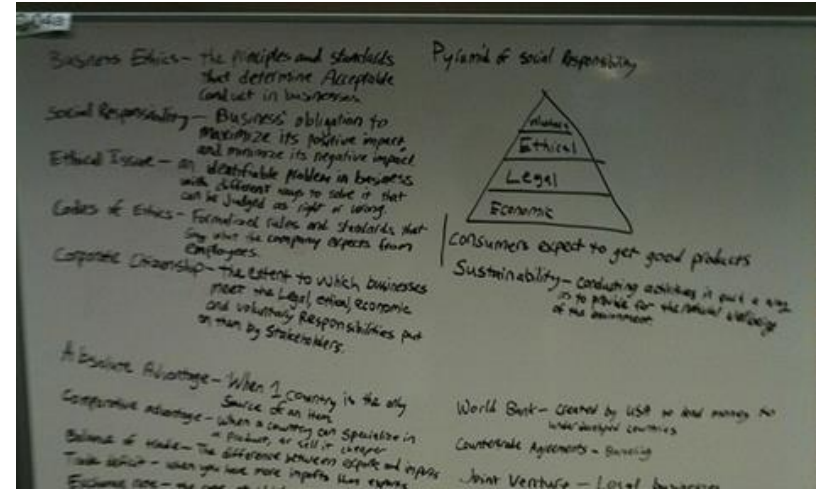 Business Ethics - the principles and standards
that determine Acceptable
conduct in businesses
Social Responsibility - Business' obligation to
maximize its positive impact,
and minimize its negative impact
Ethical Issue - an identifiable problem in business
with different ways to solve it that
can be judged as right or wrong.
Codes of Ethics - Formalized rules and standards that
say what the company expects from
employees.
Corporate Citizenship - the extent to which businesses
meet the Legal, ethical, economic
and voluntary Responsibilities put
on them by Stakeholders.
Absolute Advantage - When 1 country is the only
Source of an item
Comparative advantage - When a country can specialize in
a product, or sell it cheaper
Balance of trade - The difference between exports and imports
Trade deficit - when you have more imports than exports
Exchange rate - the
Pyramid of social Responsibility
Voluntary
Ethical
Legal
Economic
Consumers expect to get good products
Sustainability - conducting activities in such a way
as to provide for the natural wellbeing
of the
World Bank - created by USA to lend money to
underdeveloped countries
Countertrade Agreements -
Joint Venture - Local businesses